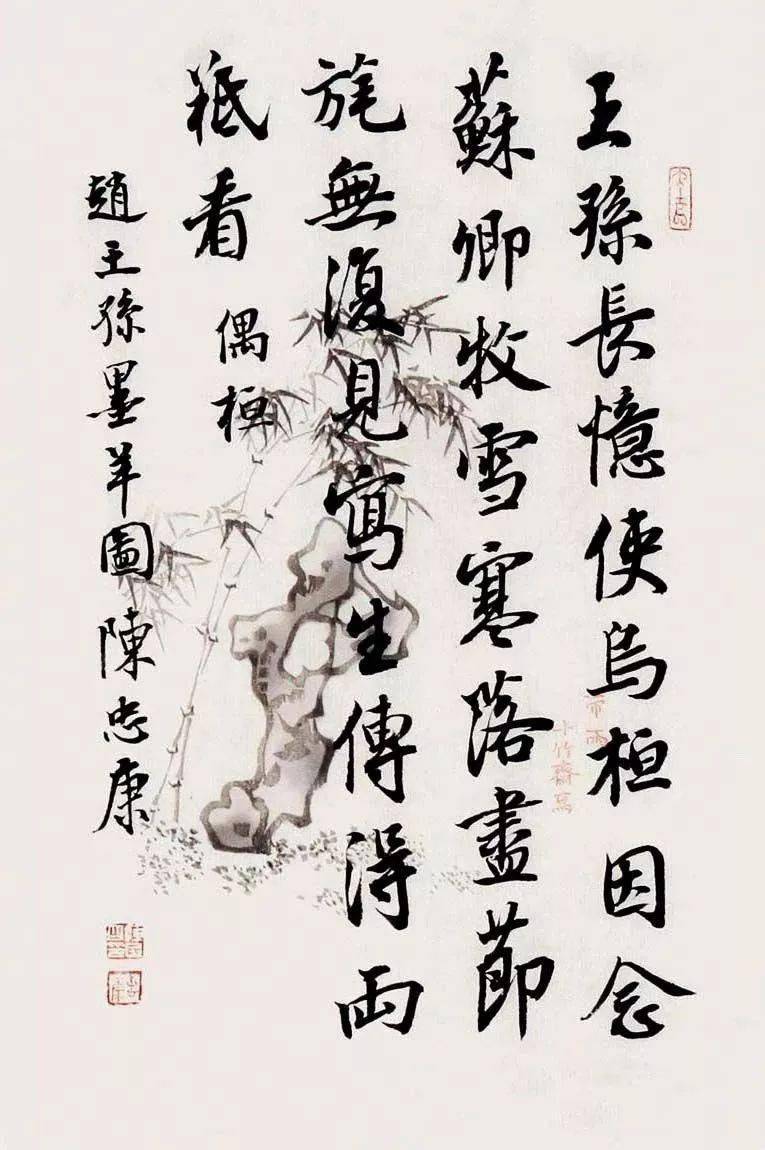 王孫長憶使烏桓因念
蘇卿牧雪寒落盡節
旄無復見寫生傳得兩
羝看 偶桓
趙王孫墨羊圖陳忠康
十竹齋寫